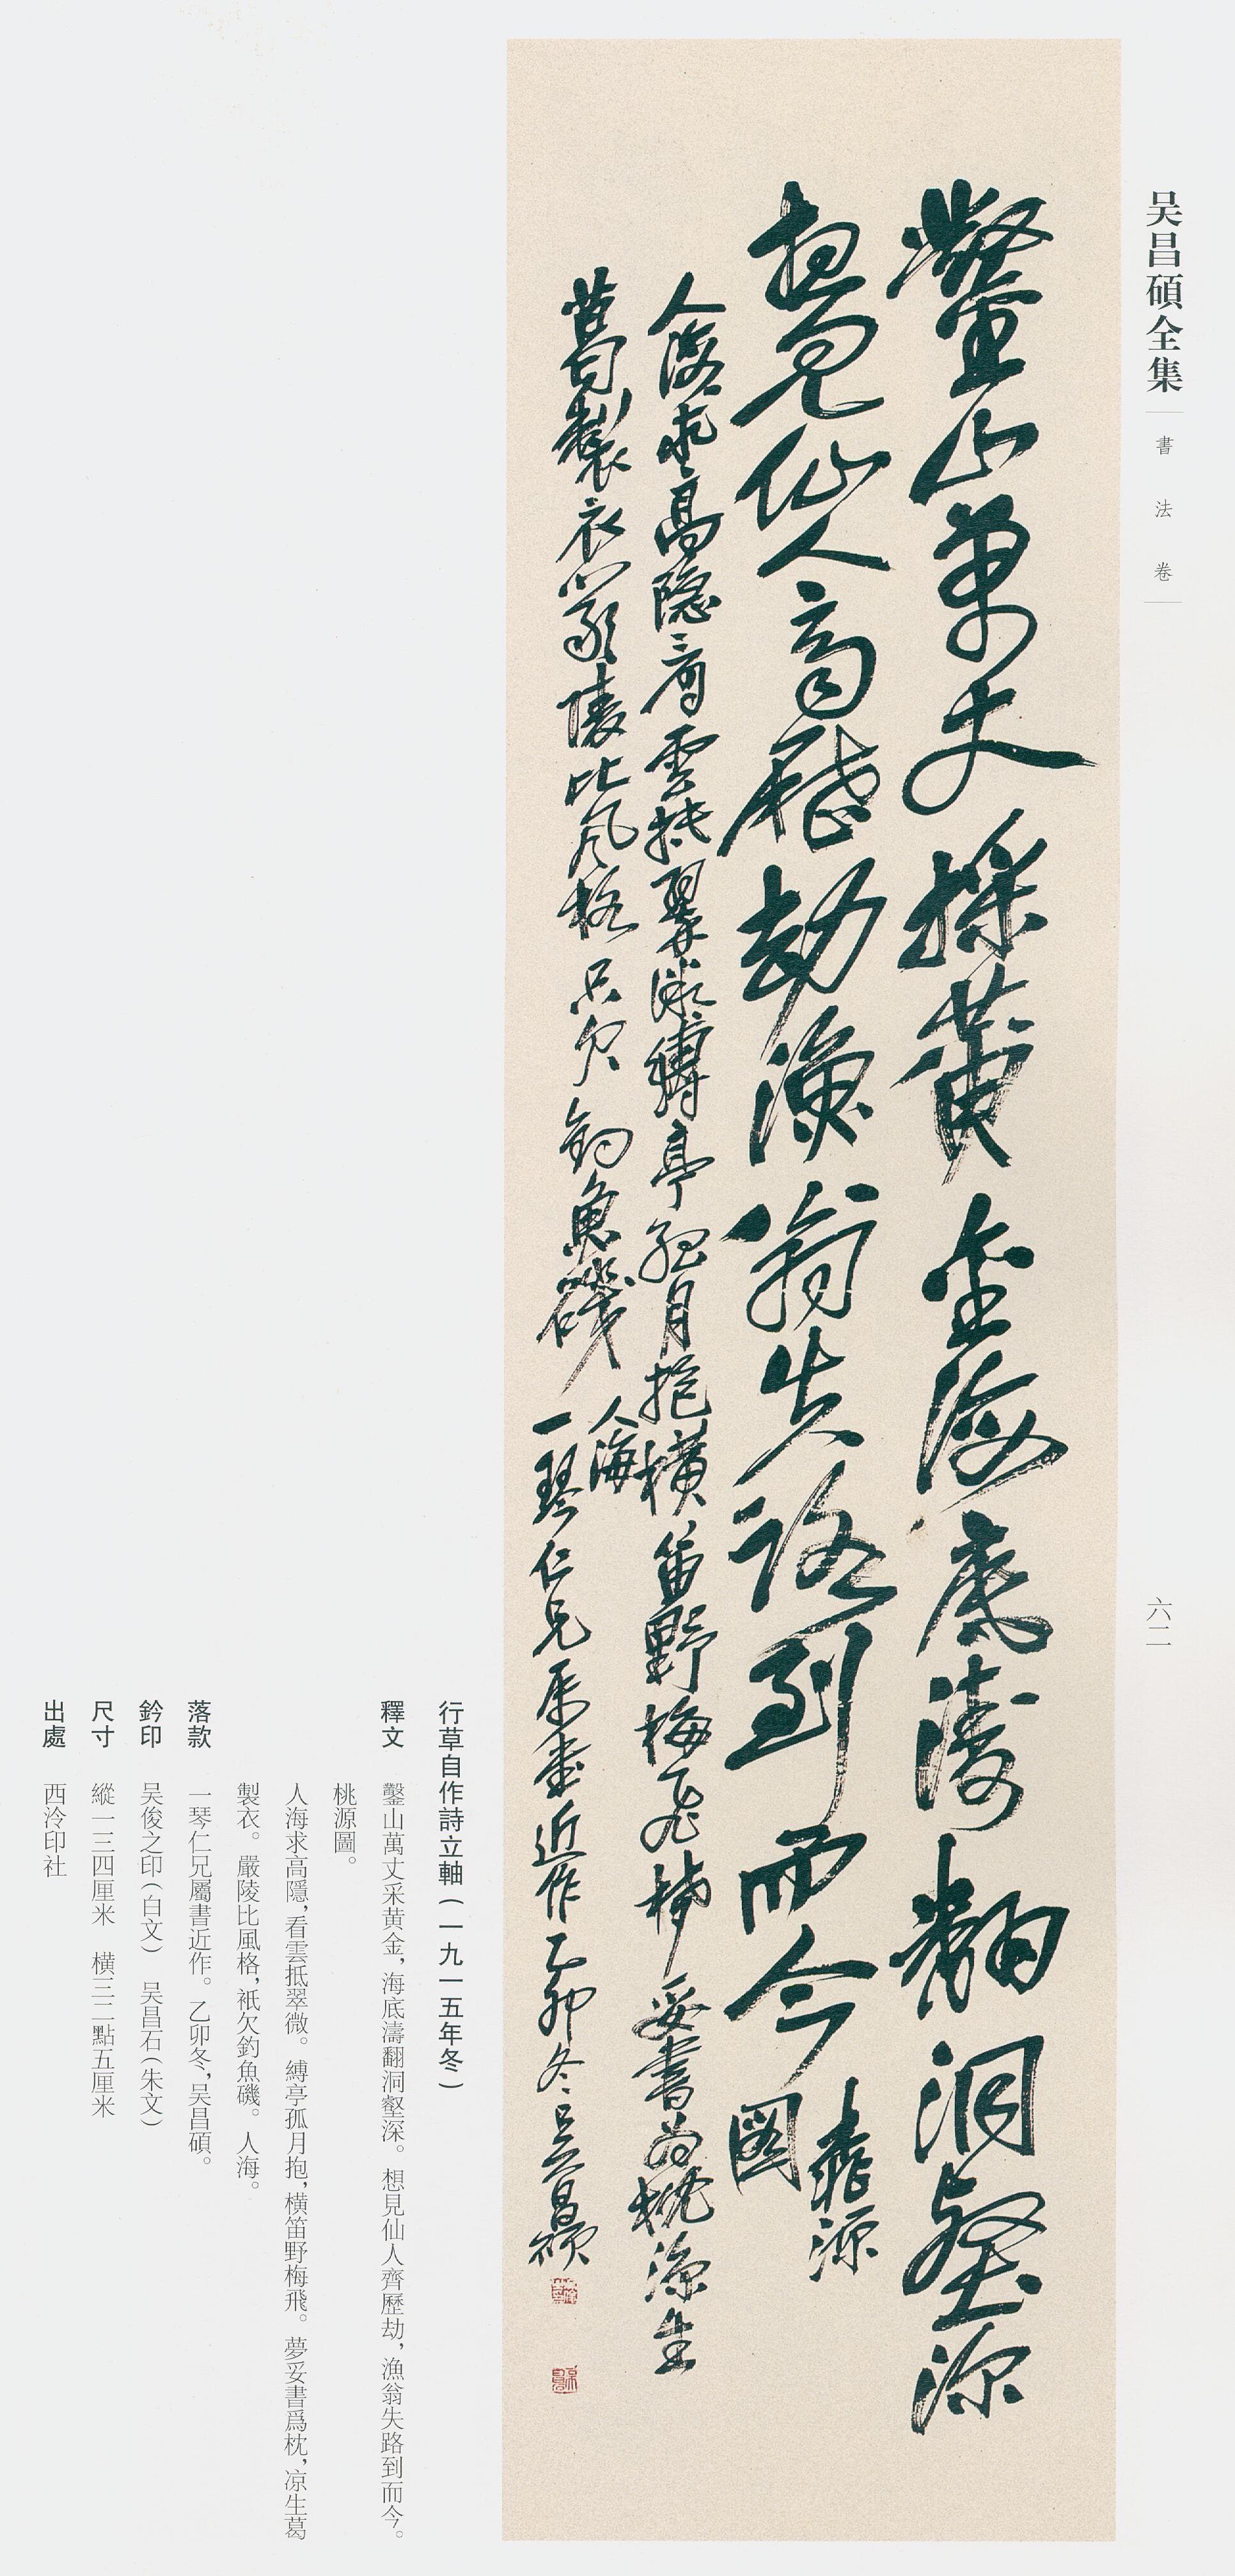 吴昌碩全集
書法卷
六二
鑿山萬丈採黄金海底濤翻洞壑深
想見仙人齊歷劫漁翁失路到而今
桃源
圖
人海求高隱看雲抵翠微縛亭孤月抱橫笛野梅飛夢妥書為枕涼生
葛製衣嚴陵比風格只欠釣魚磯
人海
一琴仁兄屬書近作乙卯冬吴昌碩
行草自作詩立軸(一九一五年冬)
釋文 鑿山萬丈采黄金,海底濤翻洞壑深。想見仙人齊歷劫,漁翁失路到而今。
桃源圖。
人海求高隱,看雲抵翠微。縛亭孤月抱,横笛野梅飛。夢妥書爲枕,凉生葛
製衣。嚴陵比風格,衹欠釣魚磯。人海。
落款 一琴仁兄屬書近作。乙卯冬,吴昌碩。
鈐印 吴俊之印(白文) 吴昌石(朱文)
尺寸 縱一三四厘米 横三二點五厘米
出處 西泠印社